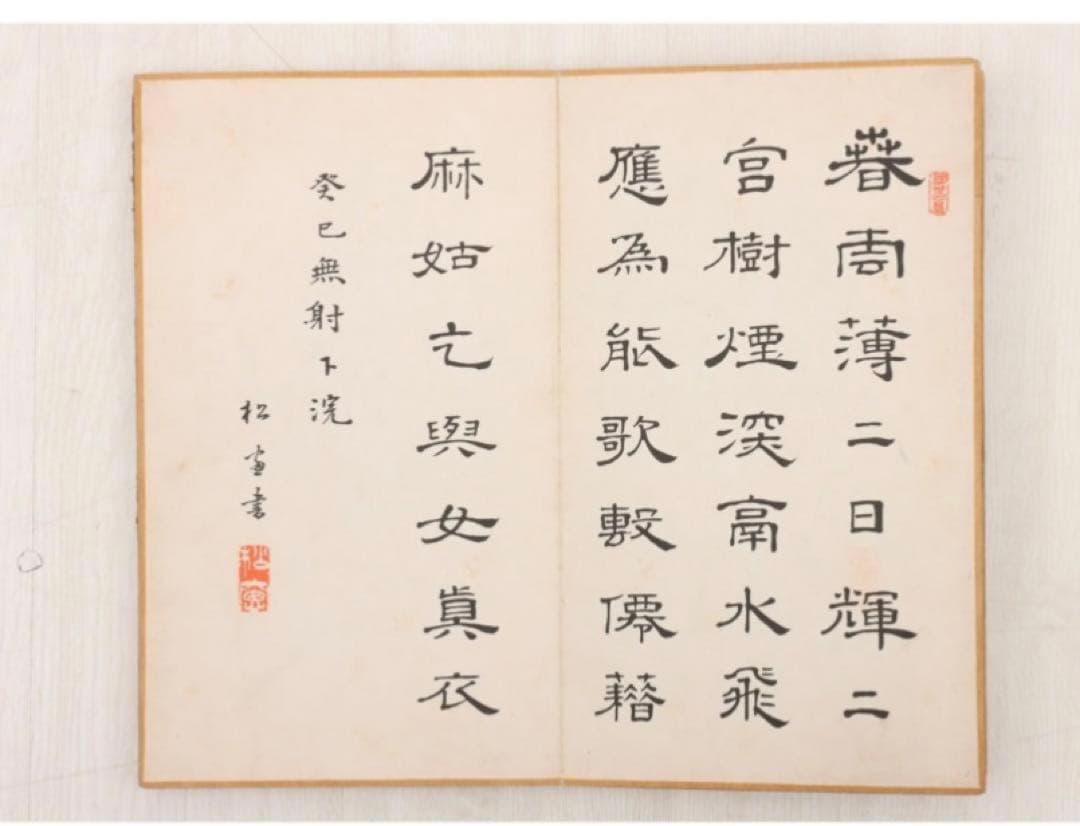 萅雲薄二日輝二
宮樹煙深鬲水飛
應為能歌毄僊藉
麻姑乞與女眞衣
癸巳無射下浣
松窗書